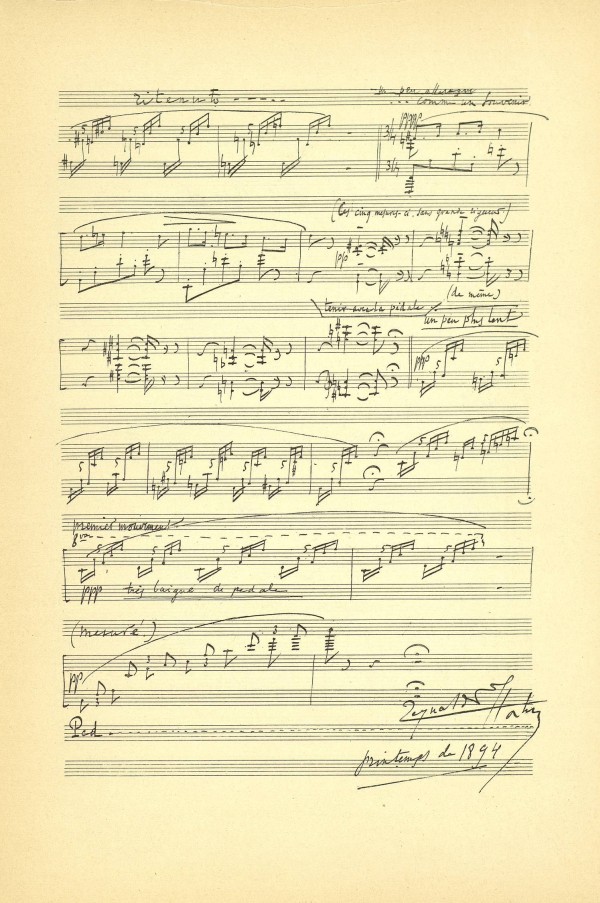 ritenuto -----
un peu allaragné
... comme un souvenir
pppp
3/4
3/4
(Ces cinq mesures-ci, sans grande rigueur)
pp
(de même)
tenir avec la pédale
un peu plus lent
ppp
5 5
5 5 5 5 5 5 5 5 5
premier mouvement
8va
ppp très baigné de pédale
(mesuré.)
pp
3 3 3
Ped.
Reynaldo Hahn
printemps de 1894